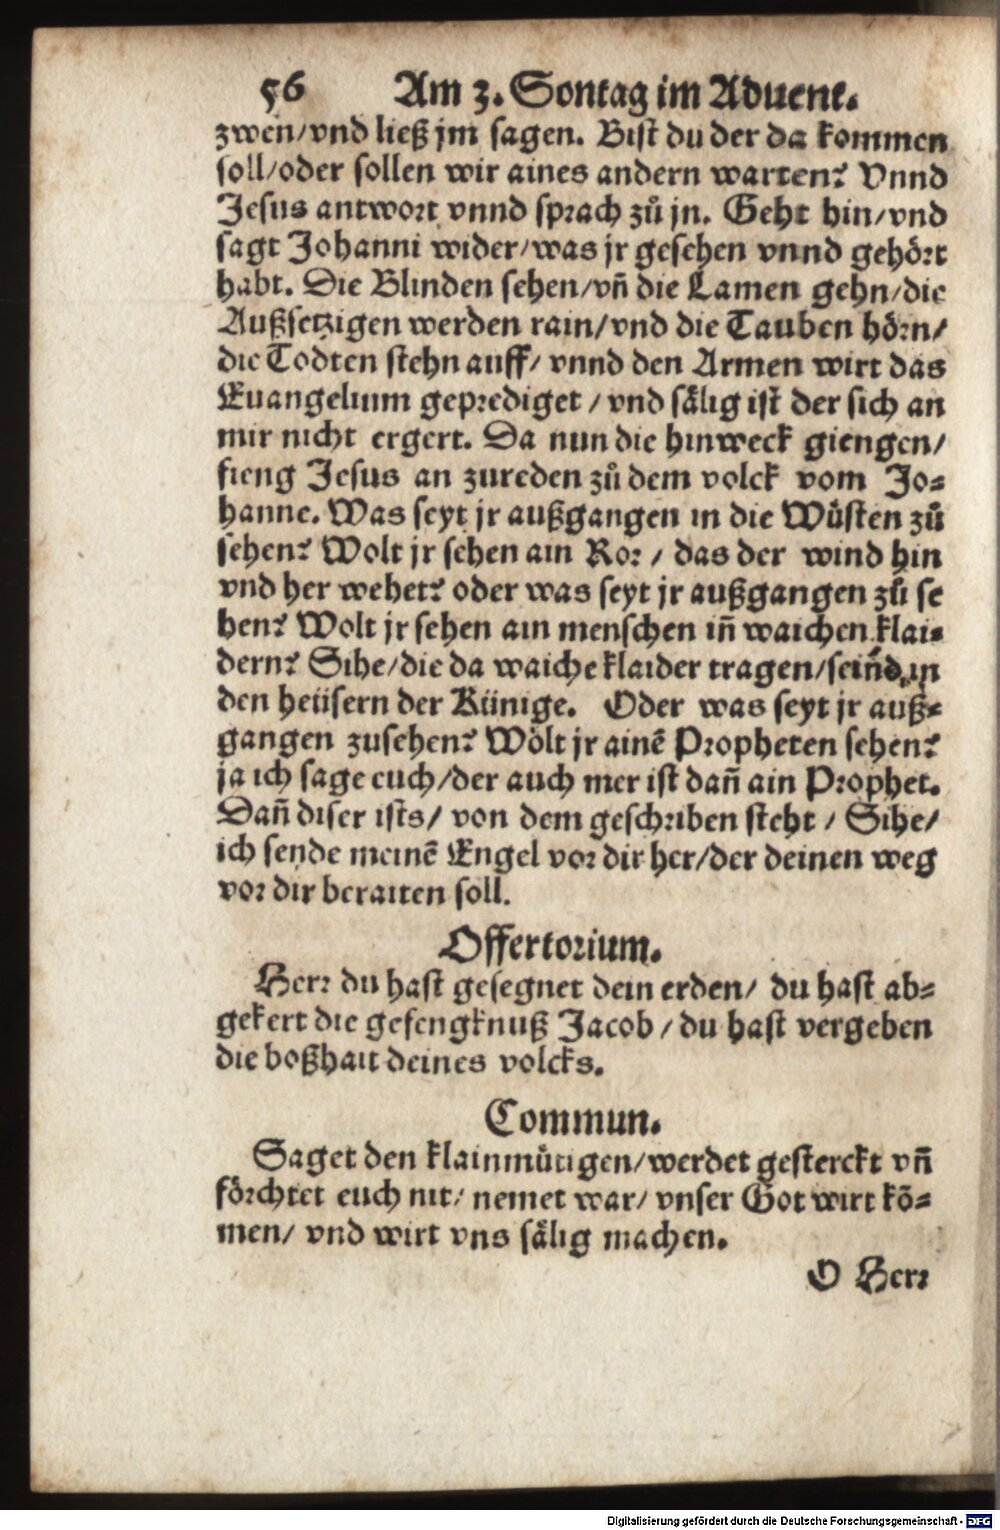 56 Am 3. Sontag im Aduent.
zwen/vnd ließ jm sagen. Bist du der da kommen
soll/oder sollen wir aines andern warten? Vnnd
Jesus antwort vnnd sprach zů jn. Geht hin/vnd
sagt Johanni wider/was jr gesehen vnnd gehört
habt. Die Blinden sehen/vñ die Lamen gehn/die
Außsetzigen werden rain/vnd die Tauben hörn/
die Todten stehn auff/ vnnd den Armen wirt das
Euangelium geprediget / vnd sälig ist der sich an
mir nicht ergert. Da nun die hinweck giengen/
fieng Jesus an zureden zů dem volck vom Jo-
hanne. Was seyt jr außgangen in die Wůsten zů
sehen? Wolt jr sehen ain Ror / das der wind hin
vnd her wehet? oder was seyt jr außgangen zů se
hen? Wolt jr sehen ain menschen iñ waichen klai-
dern? Sihe/die da waiche klaider tragen/seind in
den heüsern der Künige. Oder was seyt jr auß-
gangen zusehen? Wölt jr ainē Propheten sehen?
ja ich sage euch/der auch mer ist dañ ain Prophet.
Dañ diser ists/ von dem geschriben steht / Sihe/
ich sende meinē Engel vor dir her/der deinen weg
vor dir beraiten soll.
Offertorium.
Herr du hast gesegnet dein erden/ du hast ab-
gekert die gefengknuß Jacob / du hast vergeben
die boßhait deines volcks.
Commun.
Saget den klainmůtigen/werdet gesterckt vñ
förchtet euch nit/ nemet war/ vnser Got wirt kō-
men/ vnd wirt vns sälig machen.
O Herr
Digitalisierung gefördert durch die Deutsche Forschungsgemeinschaft - DFG